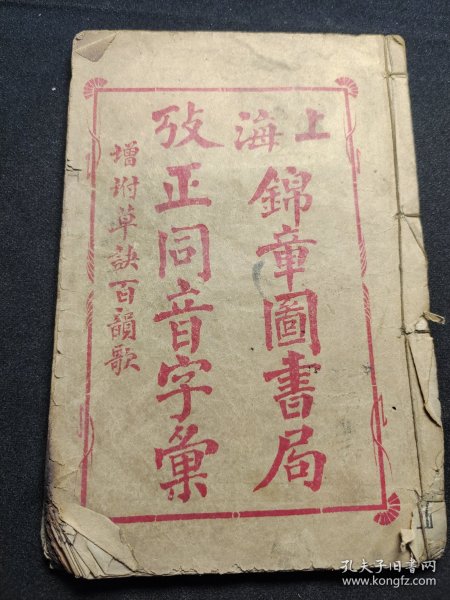 上海
錦章圖書局
攷正同音字彙
增附草訣百韻歌
孔夫子旧书网
www.kongfz.com